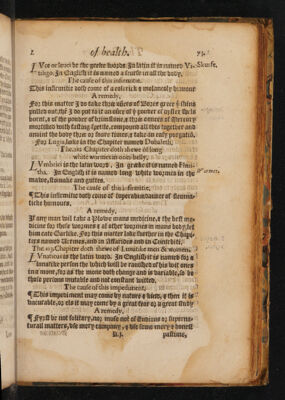 of health.
Vor or seuei be the greeke words. In latin it is named Vi-
tiligo. In English it is named a scurfe in all the body.
Scurfe.
The cause of this infirmitie.
This infirmitie doth come of a colerick & melancoly humour
A remedy.
For this matter I do take thre unces of Bores grece y skins
pulled out, the I do put to it an unce of y pouder of oyster shels
burnt, & of the pouder of brimstone, & than unces of Mercury
mortified with fasting spetle, compound all this together and
anoint the body thre or foure times, & take an easy purgatio,
The Chapiter doth shewe of long
white wormes in ones belly.
Vmbrici is the latin word. In greeke it is named Elmi-
tha. In English it is named long white wormes in the
Wormes.
mawe, stomake and guttes.
The cause of this infirmitie.
This infirmitie doth come of superabundance of fleuma-
ticke humours.
A remedy.
If any man wil take a Plowe mans medicine, & the best me-
dicine for these wormes & al other wormes in mans body, let
him eate Garlicke. For this matter loke further in the Chapi-
ters named
The Chapter doth shewe of Lunaticke men & women.
Vnaticus is the latin word. In English it is named for a
lunaticke person the which will be ravished of his wit ones
in a mone, for as the mone doth change and is variable, so be
those persons mutable and not constant witted.
The cause of this impediment.
This impediment may come by nature & kind, & then it is
uncurable, or els it may come by a great fear or a great study
A remedy.
Fyrst be not solitary, nor muse not of studious or superna-
turall matters, use mery company, & use some mery & honest
pastime,